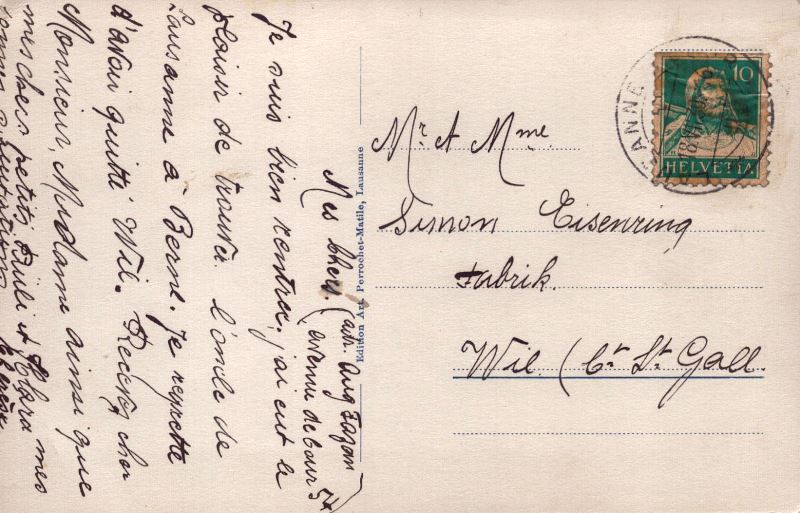 Mes chers. (adr. Aug Fazan
avenue de Cour 54)
Je suis bien rentrée, j'ai eut le
plaisir de trouver l'oncle de
Lausanne à Berne. Je regrette
d'avoir quitté Wil. Recevez, cher
Monsieur, Madame ainsi que
mes chers petits et Klara mes
bonnes salutations
Edition Art. Perrochet-Matile, Lausanne
Mr & Mme.
Simon Eisenring
Fabrik.
Wil (Ct. St. Gall.
10
HELVETIA